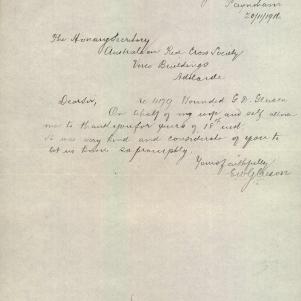 Payneham
20/11/1916
The Honary Secretary
Australian Red Cross Society
Verco Buildings
Adelaide
Dear Sir, re 4179 Wounded G. D. Gleeson
On behalf of my wife and self allow
me to thank you for yours of 18th inst
It was very kind and considerate of you to
let us know so promptly
Yours faithfully
E W Gleeson